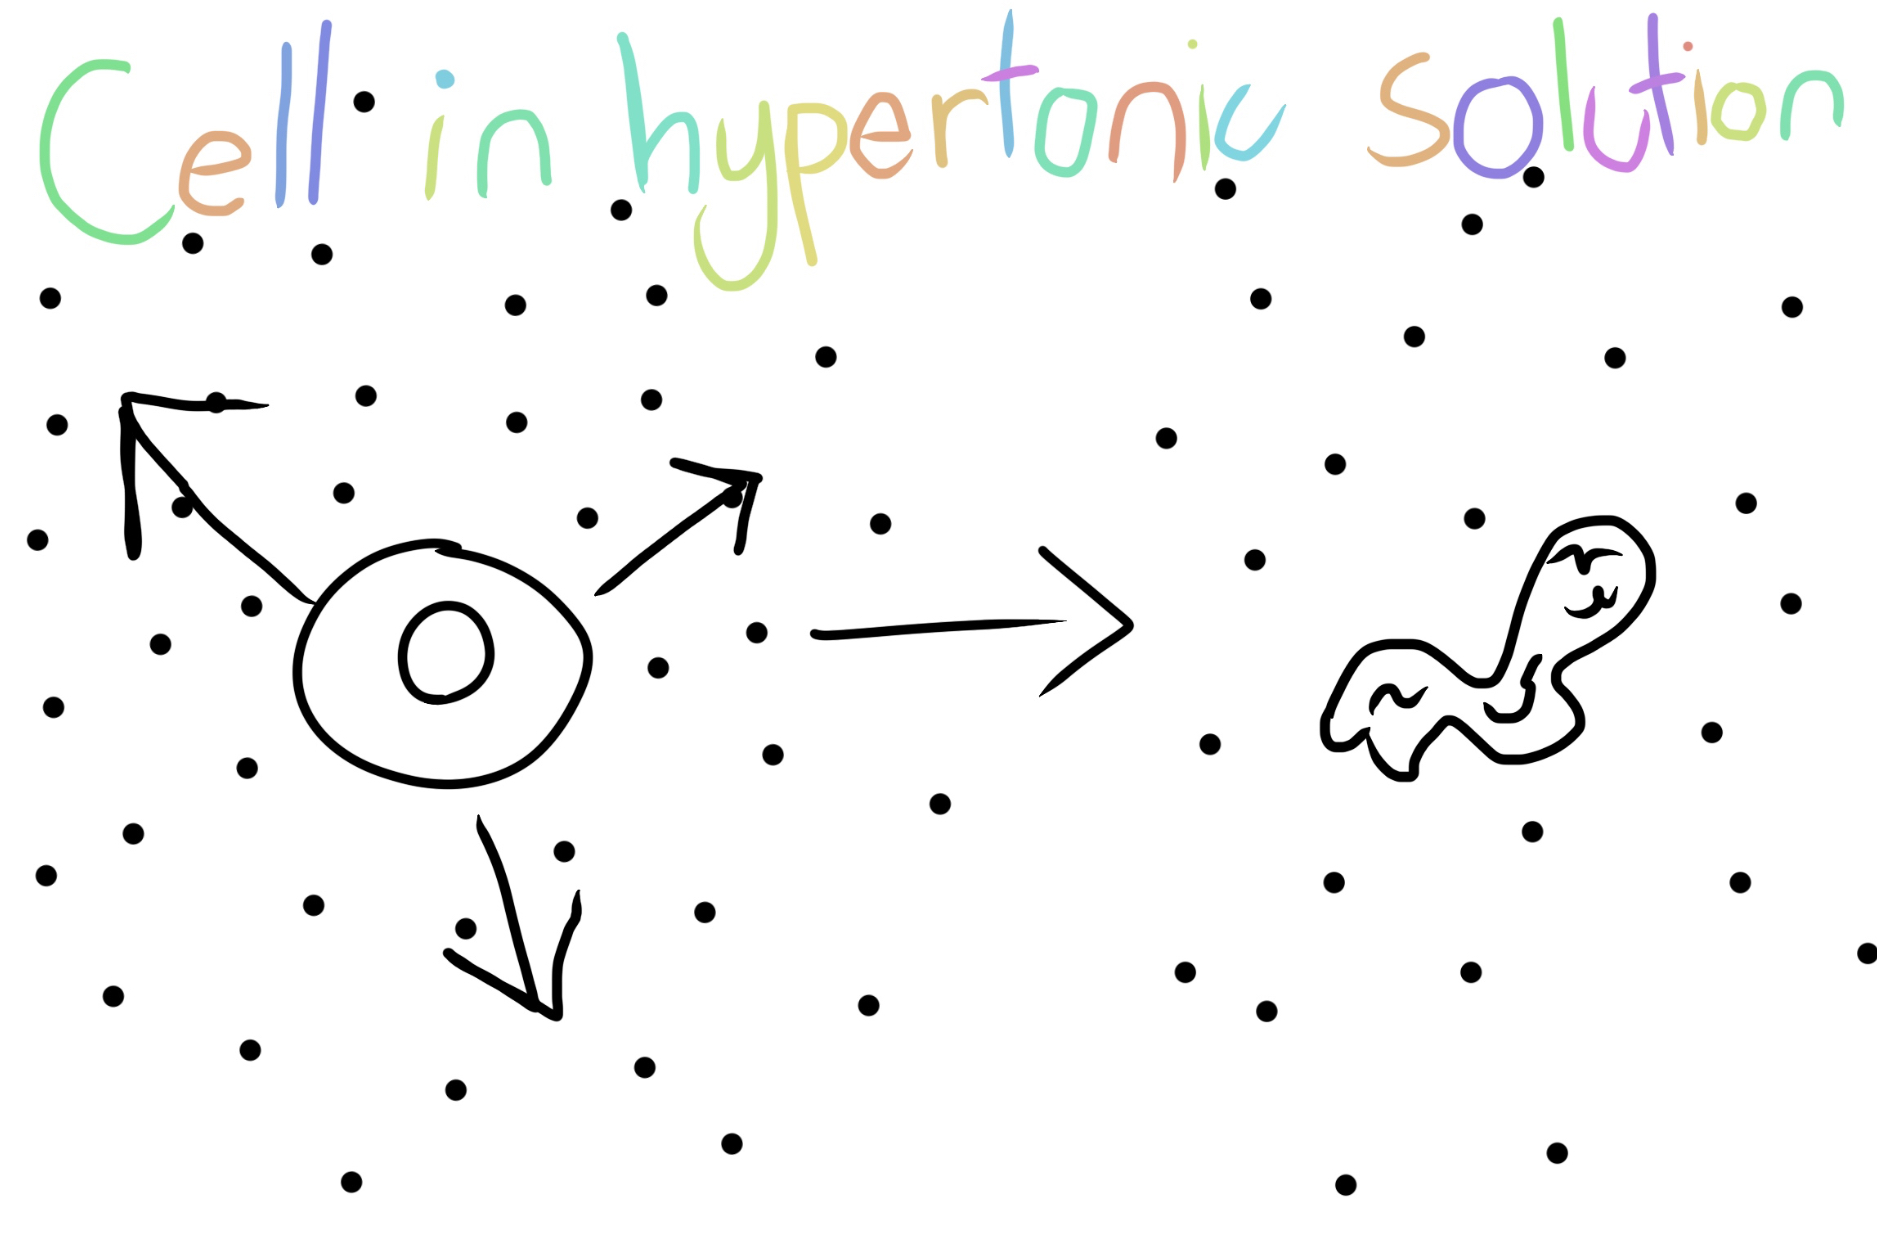 Cell in hypertonic solution